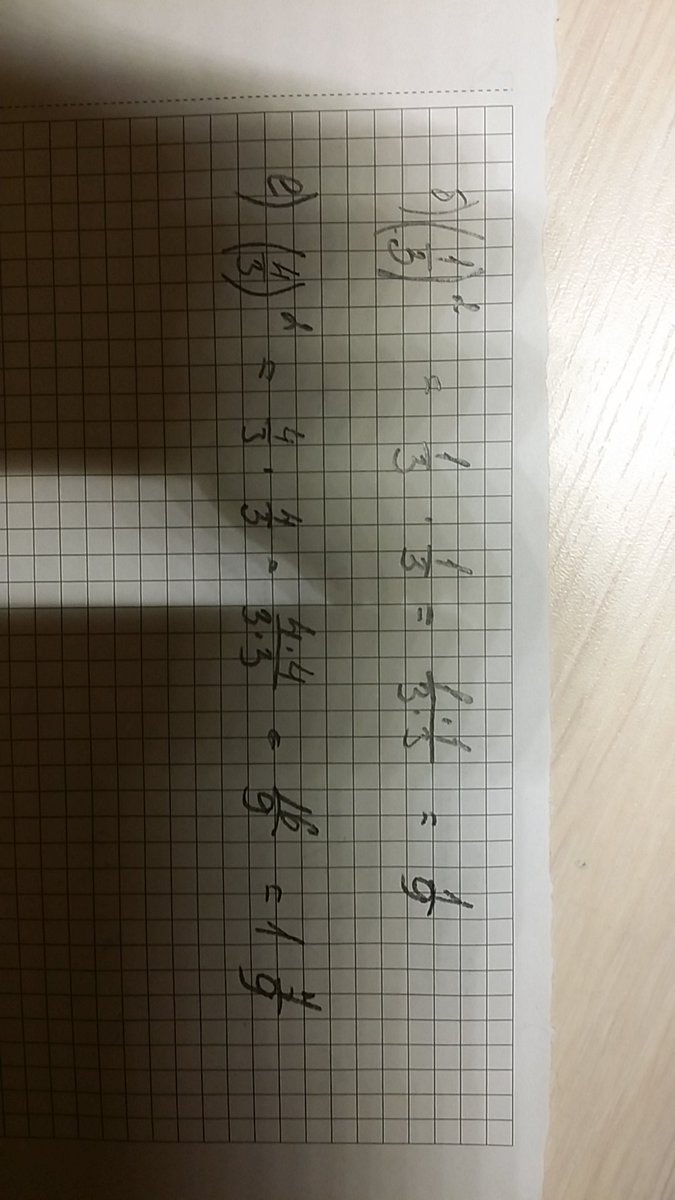 б) (1/3)² = 1/3 · 1/3 = 1·1/3·3 = 1/9
е) (4/3)² = 4/3 · 4/3 = 4·4/3·3 = 16/9 = 1 7/9